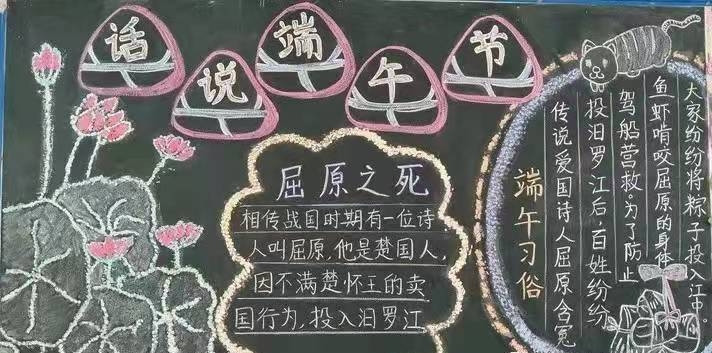 话说端午节
屈原之死
相传战国时期有一位诗
人叫屈原,他是楚国人,
因不满楚怀王的卖
国行为,投入汨罗江
端午习俗
传说爱国诗人屈原含冤
投汨罗江后,百姓纷纷
驾船营救。为了防止
鱼虾啃咬屈原的身体
大家纷纷将粽子投入江中。